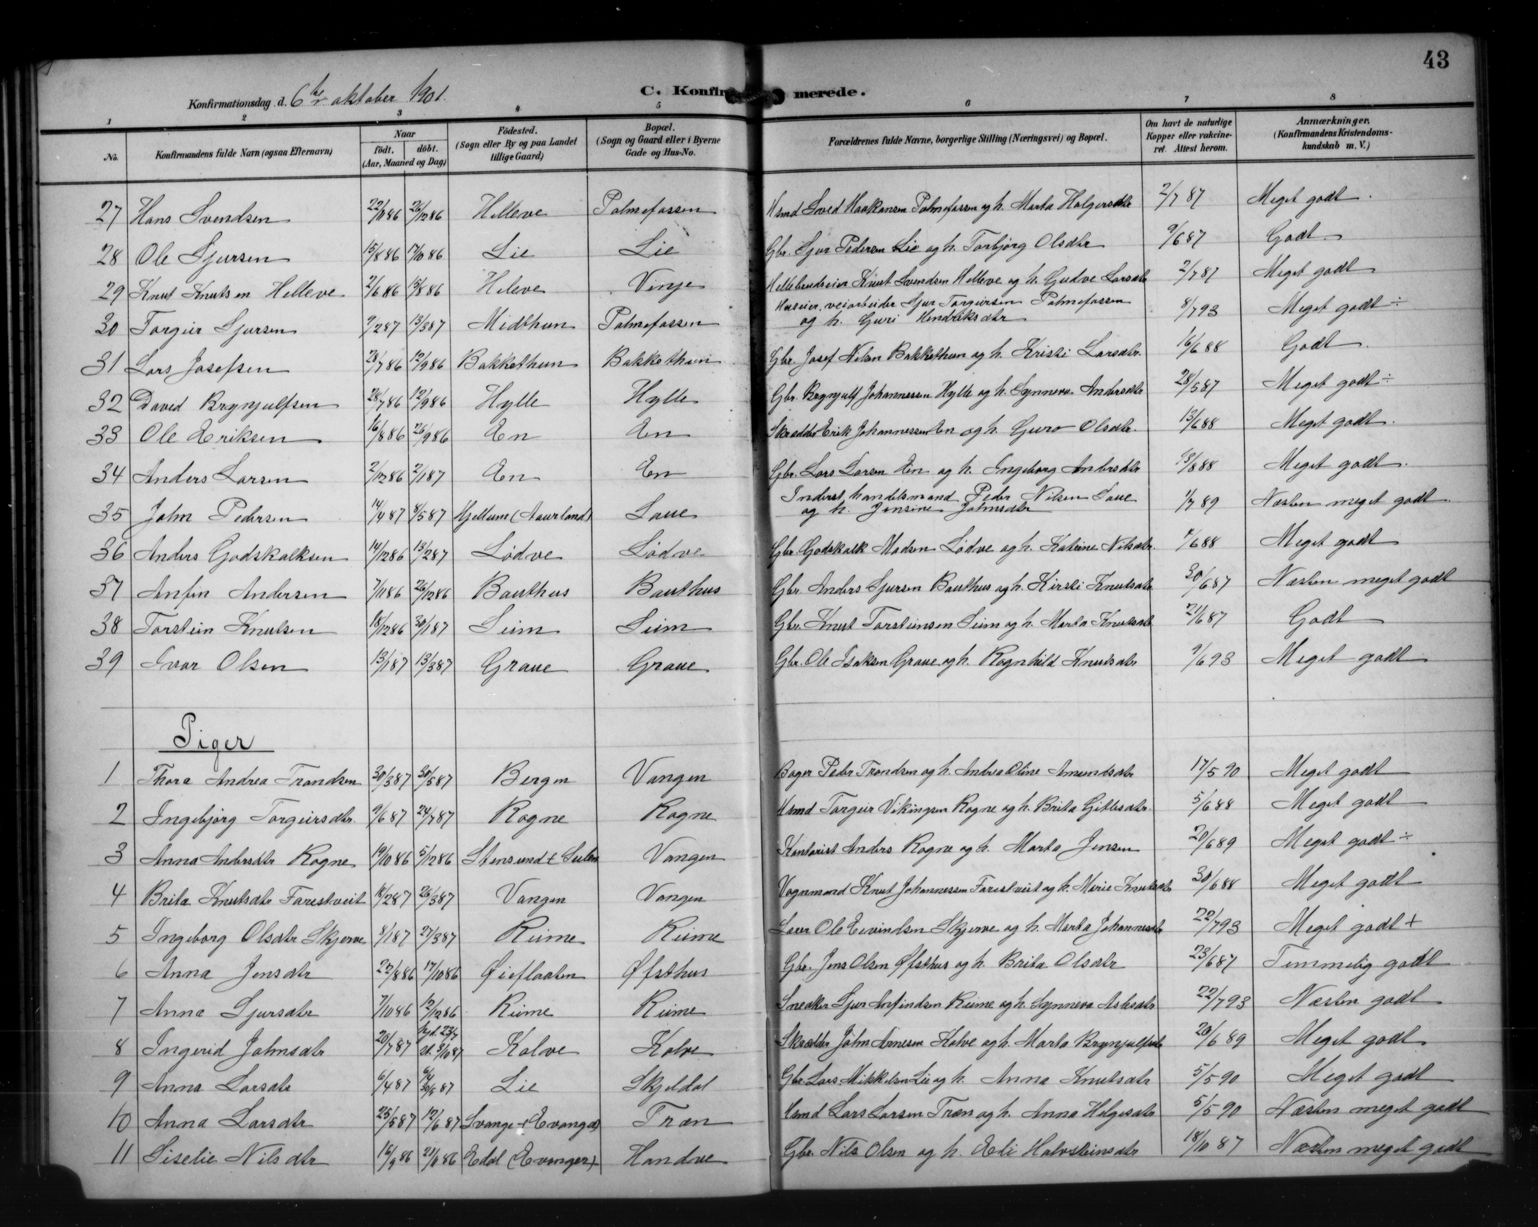 43
Konfirmationsdag d. 6te oktober 1901.
C. Konfirmerede.
1 2 3 4 5 6 7 8
No. Konfirmandens fulde Navn (ogsaa Efternavn) Naar født. døbt. (Aar, Maaned og Dag) Fødested. (Sogn eller By og paa Landet tillige Gaard) Bopæl. (Sogn og Gaard eller i Byerne Gade og Hus-No. Forældrenes fulde Navne, borgerlige Stilling (Næringsvei) og Bopæl. Om havt de naturlige Kopper eller vakcineret. Attest herom. Anmærkninger. (Konfirmandens Kristendomskundskab m. V.)
27 Hans Svendsen 22/10 86 26/12 86 Helleve Palmefossen Hsmd Sved Haakansen Palmefossen og h. Marta Holgersdtr 2/7 87 Meget godt.
28 Ole Sjursen 15/8 86 17/10 86 Lie Lie Gbr. Sjur Pedersen Lie og h. Torbjørg Olsdtr 9/6 87 Godt
29 Knut Knutsen Helleve 2/6 86 Heleve Vinje Knut Svendsen Helleve og h. Gudve Larsdtr 2/7 87 Meget godt
30 Torgeir Sjursen 9/2 87 13/3 87 Midthun Palmefossen Huseier, veiarbeider Sjur Torgeirsen Palmefossen
og h. Guri Hendriksdtr 8/7 93 Meget godt ÷
31 Lars Josefsen 28/7 86 12/9 86 Bakkethun Bakkethun Gbr. Josef Nilsen Bakkethun og h. Kristi Larsdtr. 16/6 88 Godt.
32 David Brynjulfsen 26/7 86 12/9 86 Hylle Hylle Gbr. Brynjulf Johannessen Hylle og h. Synneve Andersdtr 28/5 87 Meget godt ÷
33 Ole Eriksen 16/8 86 26/9 86 En En Skrædder Erik Johannessen En og h. Guro Olsdtr. 13/6 88 Meget godt.
34 Anders Larsen 2/12 86 2/1 87 En En Gbr. Lars Larsen En og h. Ingeborg Andersdtr 13/8 88 Meget godt.
35 John Pedersen 14/4 87 8/5 87 Hjellum (Aurland) Saue Inderst, handelsmand Peder Nilsen Saue
og h. Jensine Johnsdtr 1/7 89 Næsten meget godt.
36 Anders Godskalksen 14/12 86 13/2 87 Lødve Lødve Gbr. Godskalk Madsen Lødve og h. Katrine Nilsdtr. 4/6 88 Meget godt
37 Anfin Andersen 7/11 86 26/12 86 Bauthus Bauthus Gbr. Anders Sjursen Bauthus og h. Kirsti Knutsdtr 30/6 87 Næsten meget godt
38 Torstein Knutsen 18/12 86 30/1 87 Seim Seim Gbr. Knut Torsteinsen Seim og h. Marta Knutsdtr 21/6 87 Godt
39 Ivar Olsen 13/1 87 13/3 87 Graue Graue Gbr. Ole Isaksen Graue og h. Ragnhild Knutsdtr 9/6 93 Meget godt
Piger
1 Thora Andrea Trondsen 30/3 87 30/5 87 Bergen Vangen Bager Peder Trondsen og h. Andrea Oline Amundsdtr 17/5 90 Meget godt
2 Ingebjørg Torgeirsdtr. 9/6 87 24/7 87 Rogne Rogne Hsmd Torgeir Vikingsen Rogne og h. Brita Gittlesdtr 5/6 88 Meget godt
3 Anna Andersdtr Rogne 19/10 86 5/12 86 Vangen Kontorist Anders Rogne og h. Marta Jensen 21/6 89 Meget godt ÷
4 Brita Knutsdtr Farestveit 14/2 87 26/3 87 Vangen Vangen Vognmand Knut Johannessen Farestveit og h. Marie Knutsdtr 30/6 88 Meget godt
5 Ingeborg Olsdtr Skjerve 8/1 87 27/3 87 Rime Rime Ole Eivindsen Skjerve og h. Marta Johannesdtr 22/7 93 Meget godt +
6 Anna Jensdtr 22/8 86 17/10 86 Øieflaaten Øfsthus Gbr. Jens Olsen Øfsthus og h. Brita Olsdtr 23/6 87 Temmelig godt
7 Anna Sjursdtr 7/10 86 12/12 86 Rime Rime Snedker Sjur Anfindsen Rime og h. Synneva Aslesdtr 22/7 93 Næsten godt
8 Ingerid Johnsdtr 20/7 87 Kolve Kolve Skrædder John Arnesen Kolve og h. Marta Brynjulfsdtr 20/6 89 Meget godt
9 Anna Larsdtr 6/4 87 Lie Skjeldal Gbr. Lars Mikkelsen Lie og h. Anna Knutsdtr 5/5 90 Meget godt
10 Anna Larsdtr 25/5 87 12/6 87 (Evanger) Træn Hsmd Lars Larsen Træn og h. Anna Helgesdtr 5/5 90 Næsten meget godt
11 Siselie Nilsdtr 16/9 86 Edal (Evanger) Handve Gbr. Nils Olsen og h. Eli Halvsteinsdtr 18/10 87 Næsten meget godt